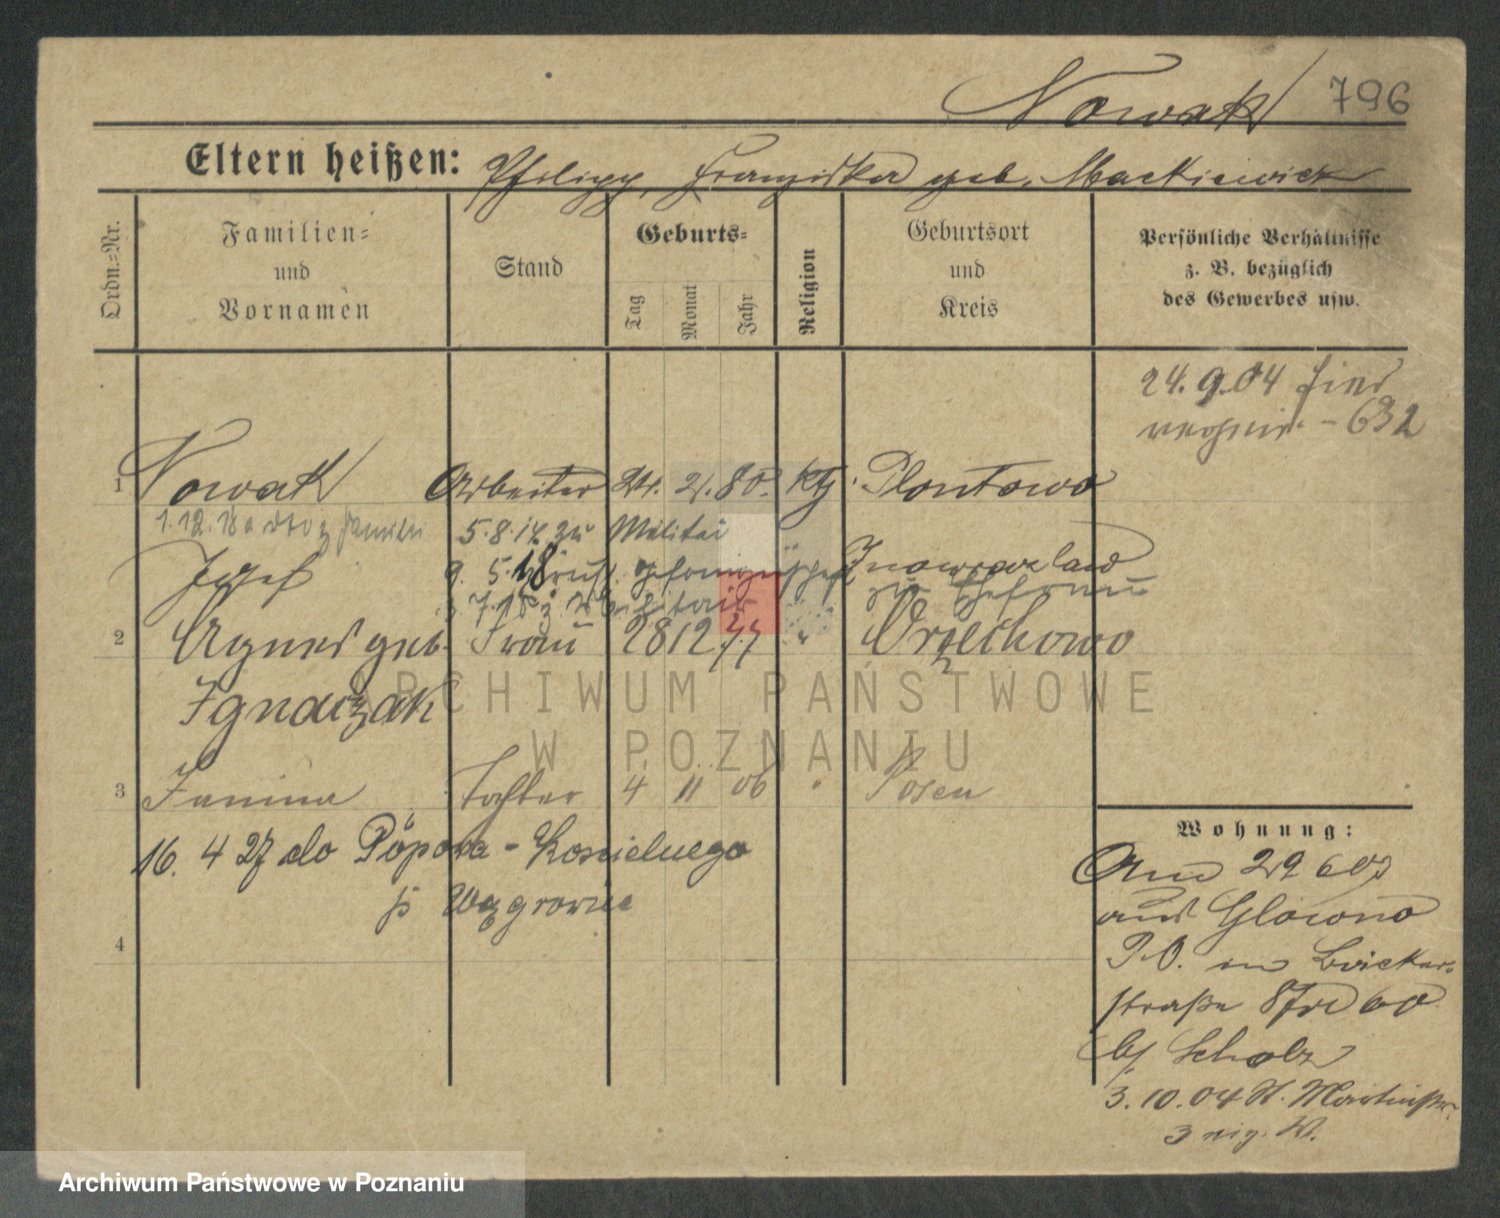 Nowak 796
Eltern heißen: Philipp, Franziska geb. Mackiewicz
Ordn.=Nr.
Familien=
und
Vornamen
Stand
Geburts=
Tag
Monat
Jahr
Religion
Geburtsort
und
Kreis
Persönliche Verhältnisse
z. B. bezüglich
des Gewerbes usw.
24.9.04 hier
- 632
1 Nowak Arbeiter 24. 2. 80. kth. Plontowo
1.12.18 5.8.14 zu Militär
Josef 9. 5. 18 Inowrazlaw
zu Ehefrau
2 Agnes geb. Frau 28 12 77 " Orzechowo
Ignaczak
ARCHIWUM PAŃSTWOWE
W POZNANIU
3 Janina Tochter 4 11 06 " Posen
16. 4 27 do Popowa-Koscielnego
p Wągrowiec
4
Wohnung:
Am 29 6 03
aus Glowno
P.O. in
straße
b/ Scholz
3.10.04 St. Martinstr.
3
Archiwum Państwowe w Poznaniu